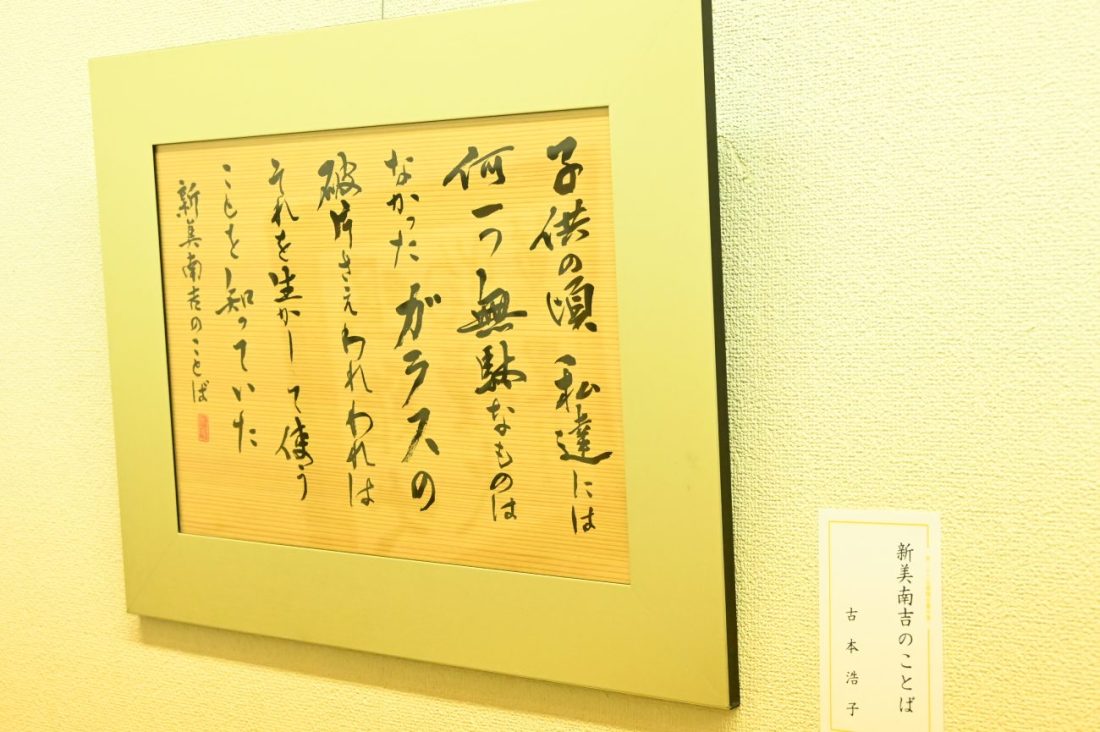 子供の頃 私達には
何一つ無駄なものは
なかった ガラスの
破片さえわれわれは
それを生かして使う
ことを知っていた
新美南吉のことば
新美南吉のことば
古本浩子